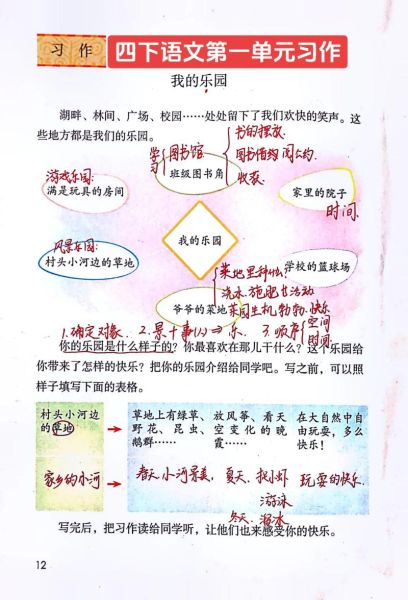 习 作
四下语文第一单元习作
我的乐园
湖畔、林间、广场、校园……处处留下了我们欢快的笑声。这
些地方都是我们的乐园。
书的摆放
学习
图书馆
图书借阅
班级图书角
收获
游戏乐园:
满是玩具的房间
家里的院子
时间
我的乐园
风景乐园:
村头小河边的草地
学校的篮球场
菜地里种什么?
浇水、施肥
活动
爷爷的菜地
菜园生机勃勃.快乐
1.确定对象. 2.景+事(人)→乐. 3.顺序
空间
时间.
你的乐园是什么样子的?你最喜欢在那儿干什么?这个乐园给
你带来了怎样的快乐?把你的乐园介绍给同学吧。写之前,可以照
样子填写下面的表格。
村头小河边
的草地
草地上有绿草、
野花、昆虫、
鹅群……
放风筝、看天
空变化的晚
霞……
在大自然中自
由玩耍,多么
快乐!
家乡的小河
春天,小河景美,
夏天.
游泳
冬天.
玩耍的快乐.
写完后,把习作读给同学听,让他们也来感受你的快乐。
12